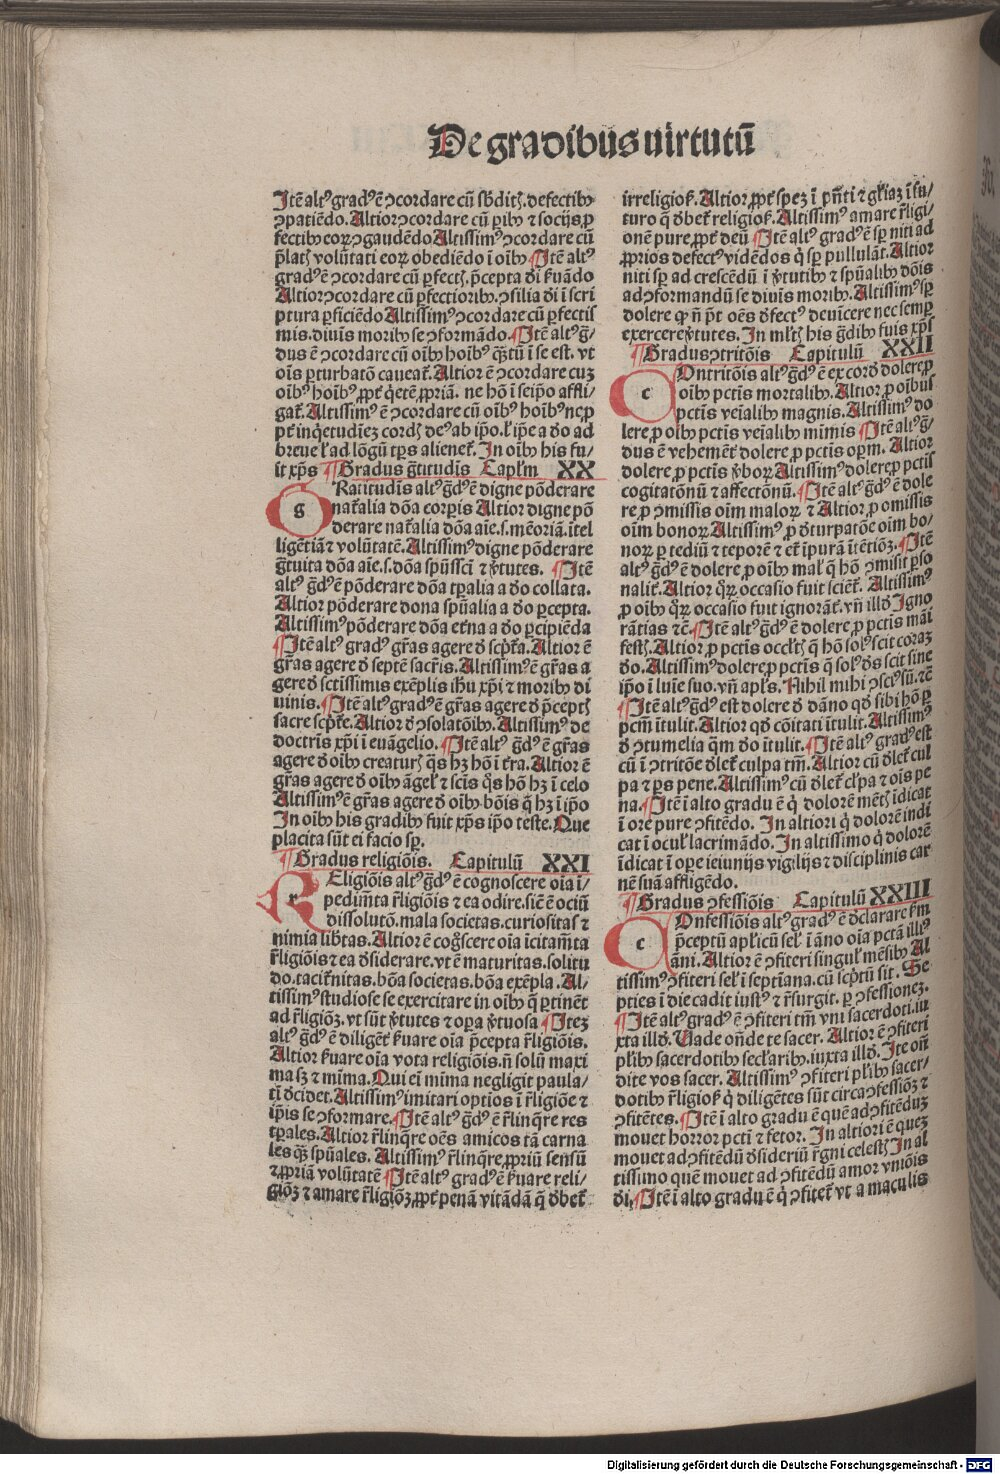 De gradibus uirtutū
Itē altꝰ gradꝰ ē ꝯcordare cū sb̄ditꝭ. defectibꝫ
ꝯpatiēdo. Altior ꝯcordare cū ꝑibꝫ ⁊ socijs ꝓ
fectibꝫ eoꝝ ꝯgaudēdo Altissimꝰ ꝯcordare cū
p̄latꝭ volūtati eoꝝ obediēdo ī oībꝫ ¶ Itē altꝰ
gradꝰ ē ꝯcordare cū ꝑfectꝭ. p̄cepta di ẜuādo
Altior ꝯcordare cū ꝑfectioribꝫ. ꝯsilia di ī scri
ptura ꝑficiēdo Altissimꝰ ꝯcordare cū ꝑfectis
mis. diuis moribꝫ se ꝯformādo. ¶ Itē altꝰ ḡ/
dus ē ꝯcordare cū oībꝫ hoībꝰ q̄ꝫtū ī se est. vt
oīs ꝑturbatō caueat᷑. Altior ē ꝯcordare cuꝫ
oībꝰ hoībꝰ ꝓpt̄ q̇etē ꝓpriā. ne hō ī seip̄o affli/
gat᷑. Altissimꝰ ē ꝯcordare cū oībꝰ hoībꝰ ne ꝓ
pt̄ inq̇etudīeꝫ cordꝭ deꝰ ab ip̄o. ł ip̄e a do ad
breue ł ad lōgū tp̄s alienet᷑. In oībꝫ his fu/
it xp̄s ¶ Gradus ḡtitudīs Capłm XX
g
Ratitudīs altꝰ ḡdꝰ ē digne pōderare
nat᷑alia dōa corꝑis Altior digne pō
derare nat᷑alia dōa aīe. s. mēoriā. ītel
ligētiā ⁊ volūtatē. Altissimꝰ digne pōderare
ḡtuita dōa aīe. s. dōa sp̄ussc̄i ⁊ v̄tutes. ¶ Itē
altꝰ ḡdꝰ ē pōderare dōa tꝑalia a do collata.
Altior pōderare dona sp̄ualia a do ꝑcepta.
Altissimꝰ pōderare dōa et̄na a do ꝑcipiēda
¶ Itē altꝰ gradꝰ gr̄as agere d̄ sc̄pt᷑a. Altior ē
gr̄as agere d̄ septē sacr̄is. Altissimꝰ ē gr̄as a
gere d̄ sctissimis exēplis ihu xp̄i ⁊ moribꝫ di
uinis. ¶ Itē altꝰ gradꝰ ē gr̄as agere d̄ p̄ceptꝭ
sacre sc̄pt᷑e. Altior d̄ ꝯsolatōibꝫ. Altissimꝰ de
doctrīs xp̄i ī euāgelio. ¶ Itē altꝰ ḡdꝰ ē gr̄as
agere d̄ oībꝫ creaturꝭ q̄s hꝫ hō ī t᷑ra. Altior ē
gr̄as agere d̄ oībꝫ āgeł ⁊ sc̄is q̄s hō hꝫ ī celo
Altissimꝰ ē gr̄as agere d̄ oībꝫ bōis q̄ hꝫ ī ip̄o
In oībꝫ his gradibꝫ fuit xp̄s ip̄o teste. Que
placita sūt ei facio sꝑ.
¶ Gradus religiōis. Capitulū XXI
r
Eligiōis altꝰ ḡdꝰ ē cognoscere oīa ī/
pedim̄ta r̄ligiōis ⁊ ea odire. sic̄ ē ociū
dissolutō. mala societas. curiositas ⁊
nimia lib̄tas. Altior ē cog̊scere oīa īcitam̄ta
r̄ligiōis ⁊ ea d̄siderare. vt ē maturitas. solitu
do. tacit᷑nitas. bōa societas. bōa exēpla. Al/
tissimꝰ studiose se exercitare in oībꝫ q̄ ꝑtinēt
ad r̄ligiōꝫ. vt sūt v̄tutes ⁊ oꝑa v̄tuosa ¶ Iteꝫ
altꝰ ḡdꝰ ē diligēt᷑ ẜuare oīa p̄cepta r̄ligiōis.
Altior ẜuare oīa vota religiōis. n̄ solū maxi
ma sꝫ ⁊ mīma. Qui ei mīma negligit paula/
tī d̄cidet. Altissimꝰ imitari optīos ī r̄ligiōe ⁊
ip̄is se ꝯformare. ¶ Itē altꝰ ḡdꝰ ē r̄linq̄re res
tꝑales. Altior r̄linq̄re oēs amicos tā carna
les q̄ꝫ sp̄uales. Altissimꝰ r̄linq̄re ꝓpriū sensū
⁊ ꝓpriā volūtatē ¶ Itē altꝰ gradꝰ ē ẜuare reli/
giōꝫ ⁊ amare r̄ligiōꝫ ꝓpt̄ penā vitādā q̄ d̄bet᷑
irreligioẜ. Altior ꝓpt̄ speꝫ ī p̄n̄ti ⁊ gl̄iaꝫ ī fu/
turo q̄ d̄bet᷑ religioẜ. Altissimꝰ amare r̄ligi/
onē pure ꝓpt̄ deū ¶ Itē altꝰ gradꝰ ē sꝑ niti ad
ꝓprios defectꝰ vidēdos q̄ sꝑ pullulāt. Altior
niti sꝑ ad crescēdū ī v̄tutibꝫ ⁊ sp̄ualibꝫ dōis
ad ꝯformandū se diuīs moribꝫ. Altissimꝰ sꝑ
dolere ꝙ n̄ pt̄ oēs d̄fectꝰ deuīcere nec semꝑ
exercere v̄tutes. In ml̄tꝭ his ḡdibꝫ fuis xp̄s
¶ Gradus ꝯtritōis Capitulū XXII
c
Ontritōis altꝰ ḡdꝰ ē ex cord̄ dolere ꝓ
oībꝫ pctīs mortalibꝫ. Altior ꝓ oībus
pctīs veīalibꝫ magnis. Altissimꝰ do
lere ꝓ oībꝫ pctīs veīalibꝫ mīmis ¶ Itē altꝰ ḡ/
dus ē vehemēt᷑ dolere ꝓ pctīs oꝑm. Altior
dolere ꝓ pctīs v̄boꝝ Altissimꝰ dolere ꝓ pctīs
cogitatōnū ⁊ affectōnū. ¶ Itē altꝰ ḡdꝰ ē dole
re ꝓ ꝯmissis oīm maloꝝ ⁊ Altior ꝓ omissis
oīm bonoꝝ Altissimꝰ ꝓ d̄turpatōe oīm bo/
noꝝ ꝑ tediū ⁊ teporē ⁊ et᷑ īpurā ītētiōꝫ. ¶ Itē
altꝰ ḡdꝰ ē dolere ꝓ oībꝫ mał q̄ hō ꝯmisit ꝑso
nalit᷑. Altior q̄ꝝ occasio fuit scient᷑. Altissimꝰ
ꝓ oībꝫ q̄ꝝ occasio fuit ignorāt᷑. vn̄ illd̄ Igno
rātias ⁊c̄. ¶ Itē altꝰ ḡdꝰ ē dolere ꝓ pctīs māi
festꝭ. Altior ꝓ pctīs occl̄tꝭ q̄ hō solꝰ scit coraꝫ
do. Altissimꝰ dolere ꝓ pctīs q̄ solꝰ d̄s scit sine
ip̄o ī luīe suo. vn̄ apl̄s. Nihil mihi ꝯsciꝰ sū. ⁊c̄
¶ Itē altꝰ ḡdꝰ est dolere d̄ dāno qd̄ sibi hō ꝑ
pcm̄ ītulit. Altior qd̄ cōitati ītulit. Altissimꝰ
d̄ ꝯtumelia q̄m do ītulit. ¶ Itē altꝰ gradꝰ est
cū ī ꝯtritōe d̄let᷑ culpa tm̄. Altior cū d̄let᷑ cul
pa ⁊ ꝑs pene. Altissimꝰ cū d̄let᷑ cl̄pa ⁊ oīs pe
na. ¶ Itē ī alto gradu ē q̇ dolorē mētꝭ īdicat
ī ore pure ꝯfitēdo. In altiori q̇ dolorē indi
cat ī ocuł lacrimādo. In altissimo q̇ dolorē
īdicat ī oꝑe ieiunijs vigilijs ⁊ disciplinis car
nē suā affligēdo.
¶ Gradus ꝯfessiōis Capitulū XXIII
c
Onfessiōis altꝰ gradꝰ ē d̄clarare ẜm
p̄ceptū apl̄icū seł ī āno oīa pctā illiꝰ
āni. Altior ē ꝯfiteri singuł mēsibꝫ Al
tissimꝰ ꝯfiteri seł ī septiana. cū sc̄ptū sit. Se
pties ī die cadit iustꝰ ⁊ r̄surgit. ꝑ ꝯfessioneꝫ.
¶ Itē altꝰ gradꝰ ē ꝯfiteri tm̄ vni sacerdoti. iu
xta illd̄. Uade on̄de te sacer. Altior ē ꝯfiteri
pl̄ibꝫ sacerdotibꝫ secl̄aribꝫ. iuxta illd̄. Ite on̄
dite vos sacer. Altissimꝰ ꝯfiteri pl̄ibꝫ sacer/
dotibꝫ r̄ligioẜ q̇ diligētes sūt circa ꝯfessiōꝫ ⁊
ꝯfitētes. ¶ Itē ī alto gradu ē quē ad ꝯfitēduꝫ
mouet horror pcti ⁊ fetor. In altiori ē queꝫ
mouet ad ꝯfitēdū d̄sideriū r̄gni celestꝭ In al
tissimo quē mouet ad ꝯfitēdū amor vniōis
di. ¶ Itē ī alto gradu ē q̇ ꝯfitet᷑ vt a maculis
Digitalisierung gefördert durch die Deutsche Forschungsgemeinschaft - DFG